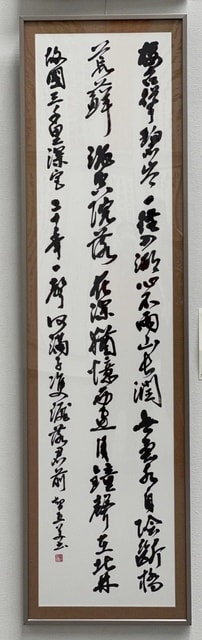 樓台聳碧岑一徑入湖心不雨山長潤無雲水自陰斷橋
荒蘚澀空院落花深猶憶西窗月鐘聲在北林
故國三千里深宮二十年一聲何滿子雙淚落君前